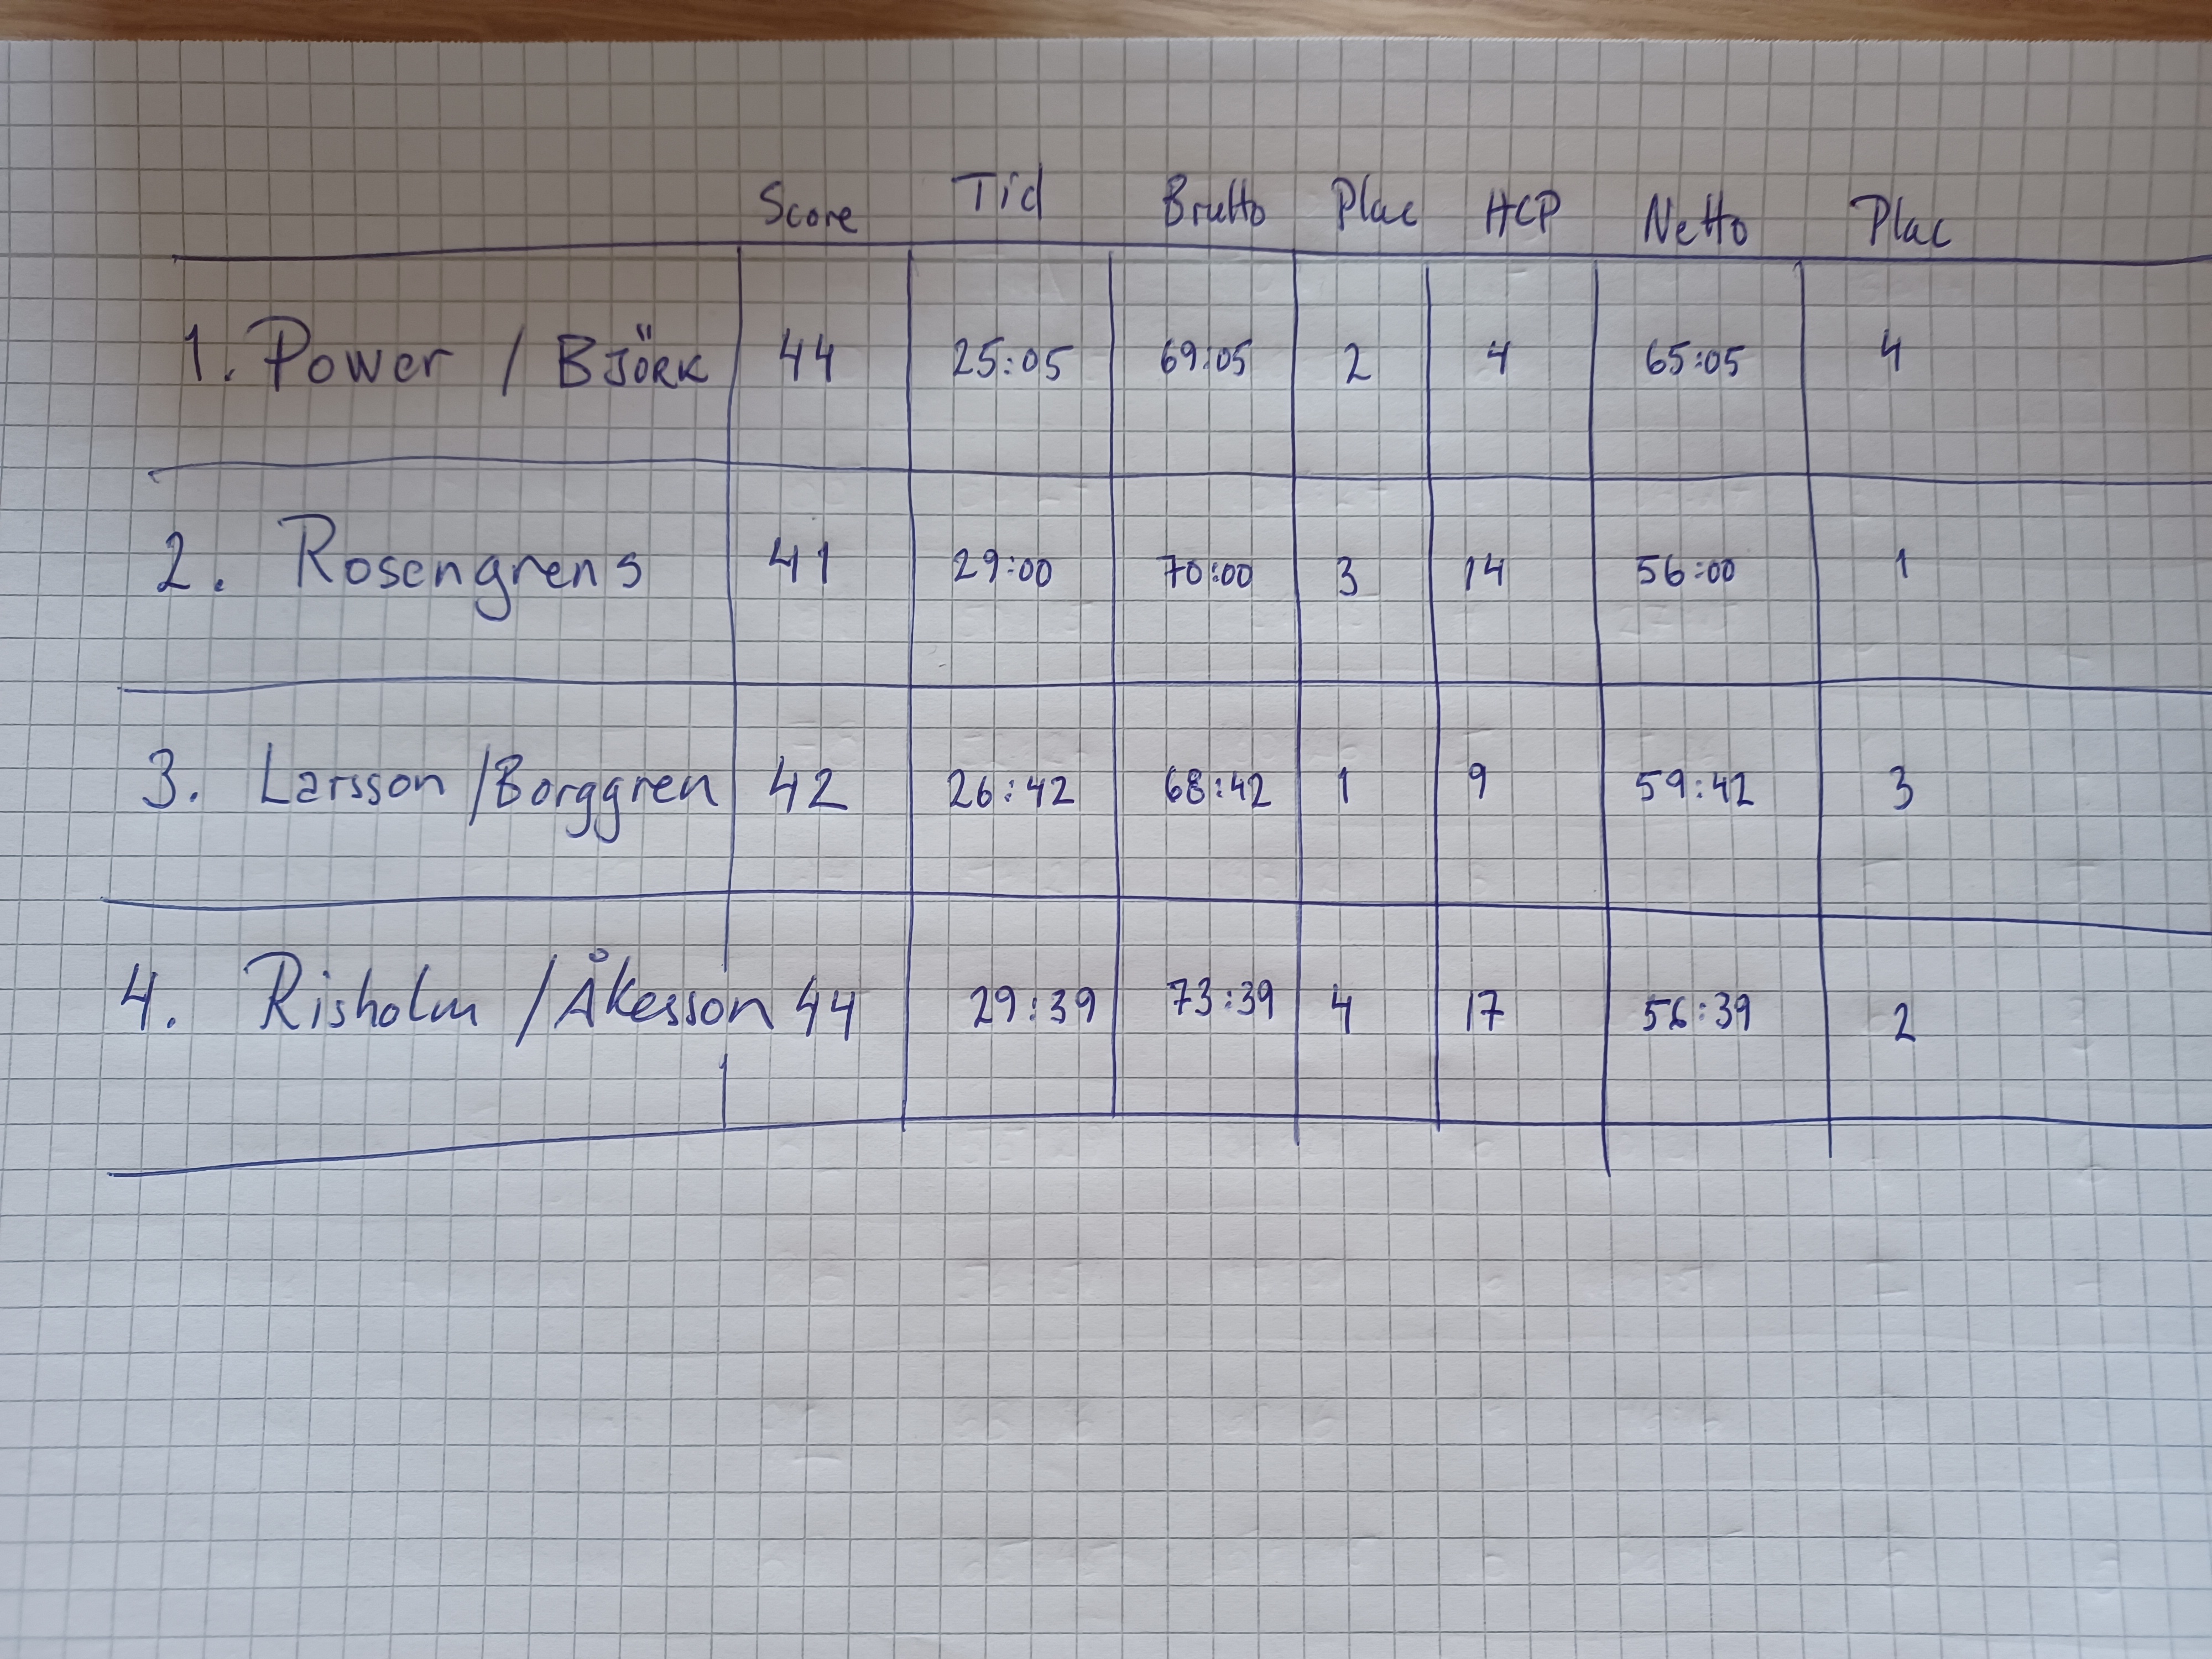 Score Tid Brutto Plac HCP Netto Plac
1. Power / BJÖRK 44 25:05 69:05 2 4 65:05 4
2. Rosengrens 41 29:00 70:00 3 14 56:00 1
3. Larsson /Borggren 42 26:42 68:42 1 9 59:42 3
4. Risholm /Åkesson 44 29:39 73:39 4 17 56:39 2